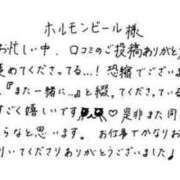 ホルモンビール 様
お忙しい中、口コミのご投稿ありがと
褒めてくださってる...! 恐縮でござい
『また一緒に...』と綴ってくださって
すごく嬉しいです ♡ 是非また同
らなと思います。 お仕事でかなりお
いてくださりありがとうございました♪